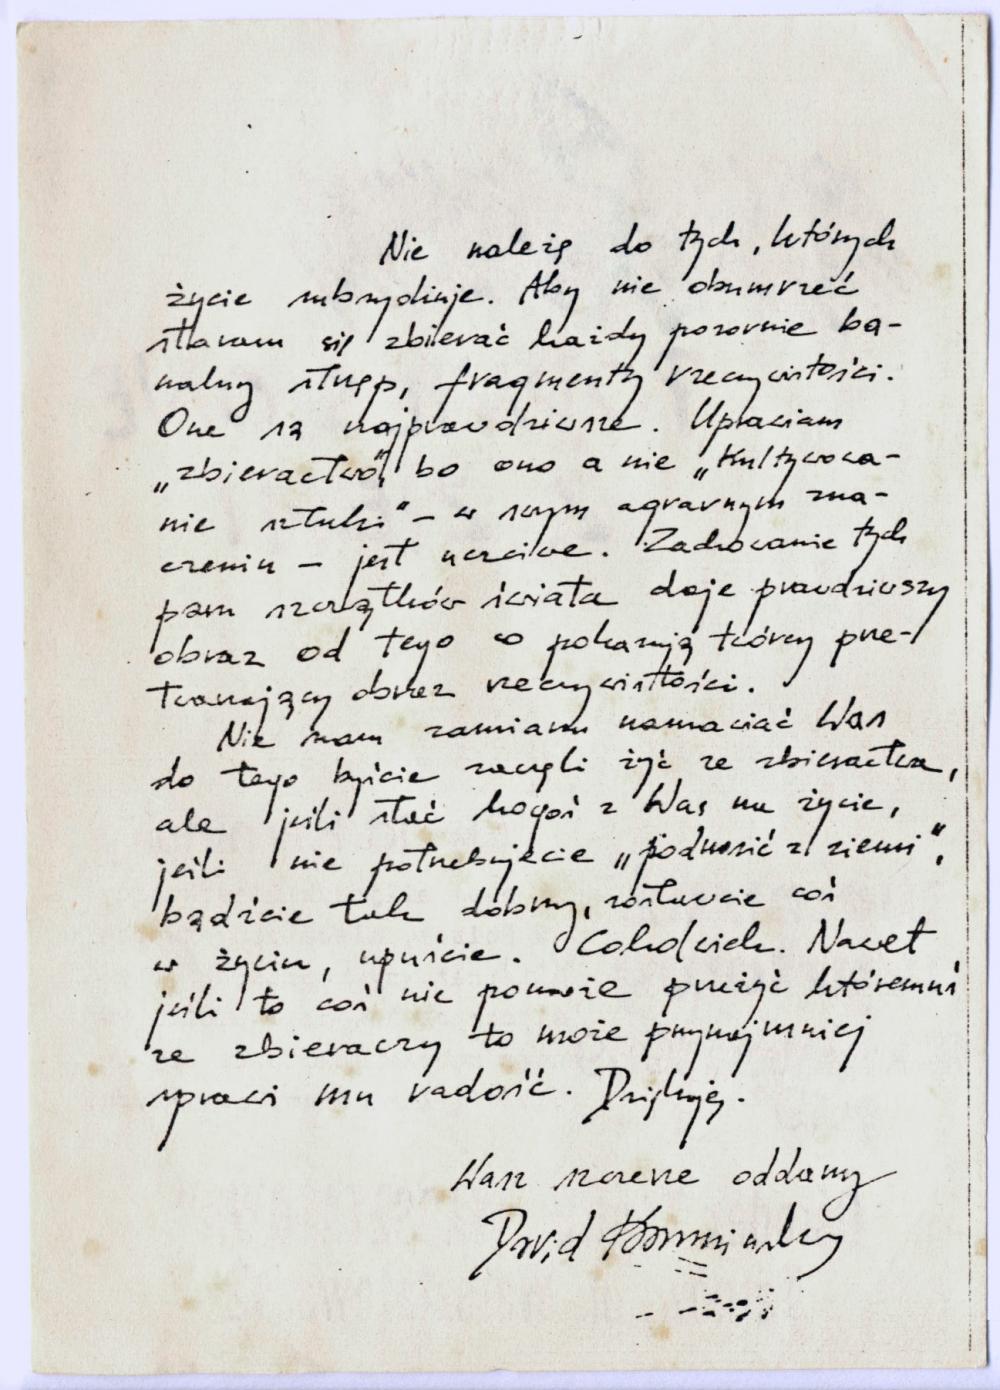 Nie należę do tych, których
życie subsydiuje. Aby nie obumrzeć
staram się zbierać każdy pozornie ba-
nalny strzęp, fragmenty rzeczywistości.
One są najprawdziwsze. Uprawiam
„zbieractwo”, bo ono a nie „Kultywowa-
nie sztuki” – w swym agrarnym zna-
czeniu – jest uczciwe. Zachowanie tych
paru szczątków świata daje prawdziwszy
obraz od tego co pokazują twórcy prze-
twarzający obraz rzeczywistości.
Nie mam zamiaru namawiać Was
do tego byście zaczęli żyć ze zbieractwa,
ale jeśli stać kogoś z Was na życie,
jeśli nie potrzebujecie „podnosić z ziemi”,
bądźcie tak dobrzy, zostawcie coś
w życiu, upuście. Cokolwiek. Nawet
jeśli to coś nie pomoże przeżyć któremuś
ze zbieraczy to może przynajmniej
sprawi mu radość. Dziękuję.
Wasz szczerze oddany
David